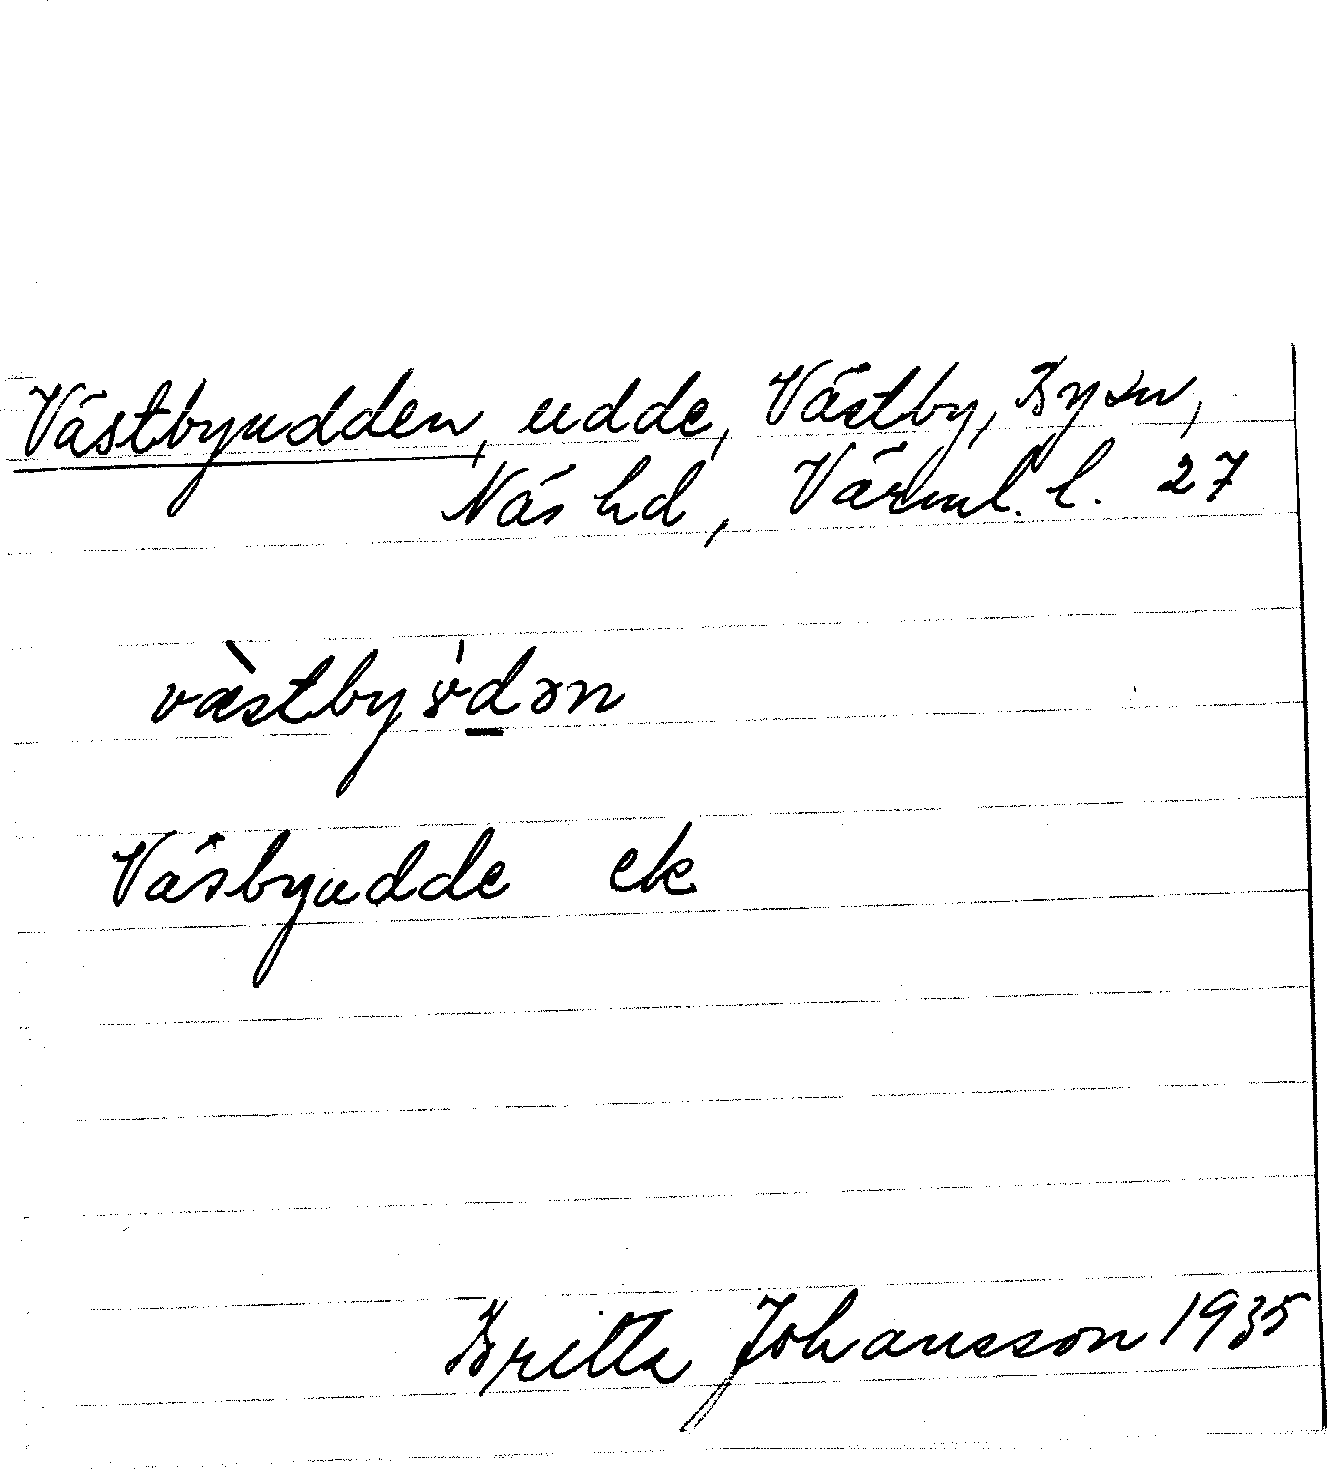 Västbyudden, udde, Västby, By sn,
Näs hd, Värml. l. 27
västbyv̇dən
Väsbyudde ek
Britta Johansson 1935